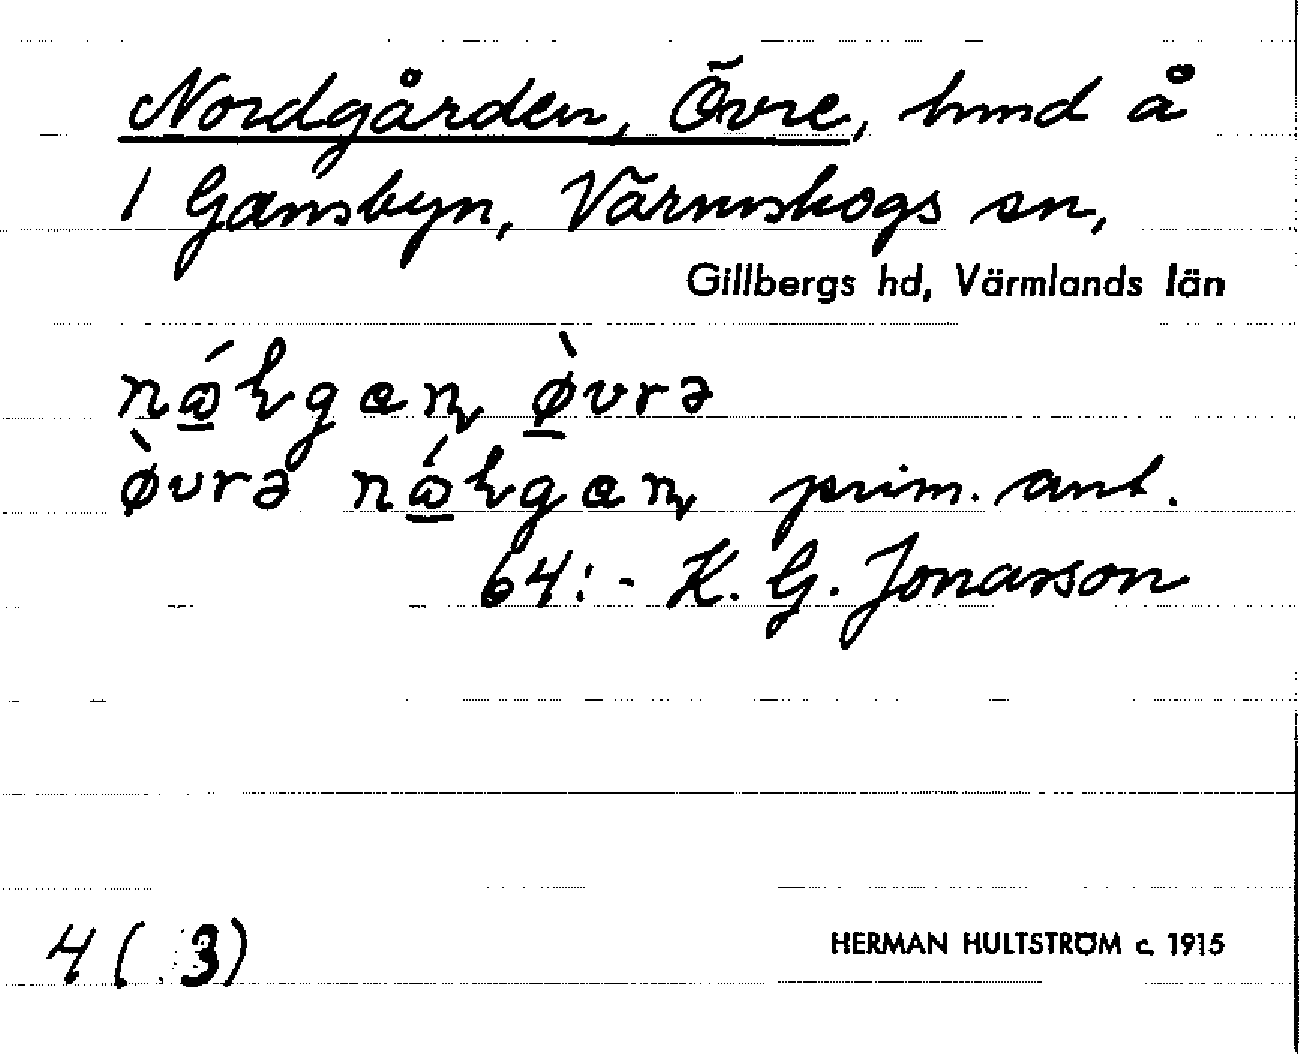 Nordgården, Övre, hmd å
1 Gamsbyn, Värmskogs sn,
Gillbergs hd, Värmlands län
øvrə
øvrə prim. ant.
64:- K. G. Jonarson
4 ( 3)
HERMAN HULTSTRÖM c. 1915